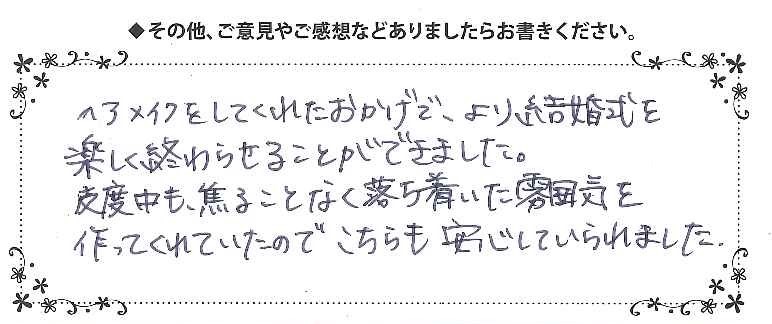 ◆その他、ご意見やご感想などありましたらお書きください。
ヘアメイクをしてくれたおかげで、より結婚式を
楽しく終わらせることができました。
支度中も、焦ることなく落ち着いた雰囲気を
作ってくれていたのでこちらも安心していられました.